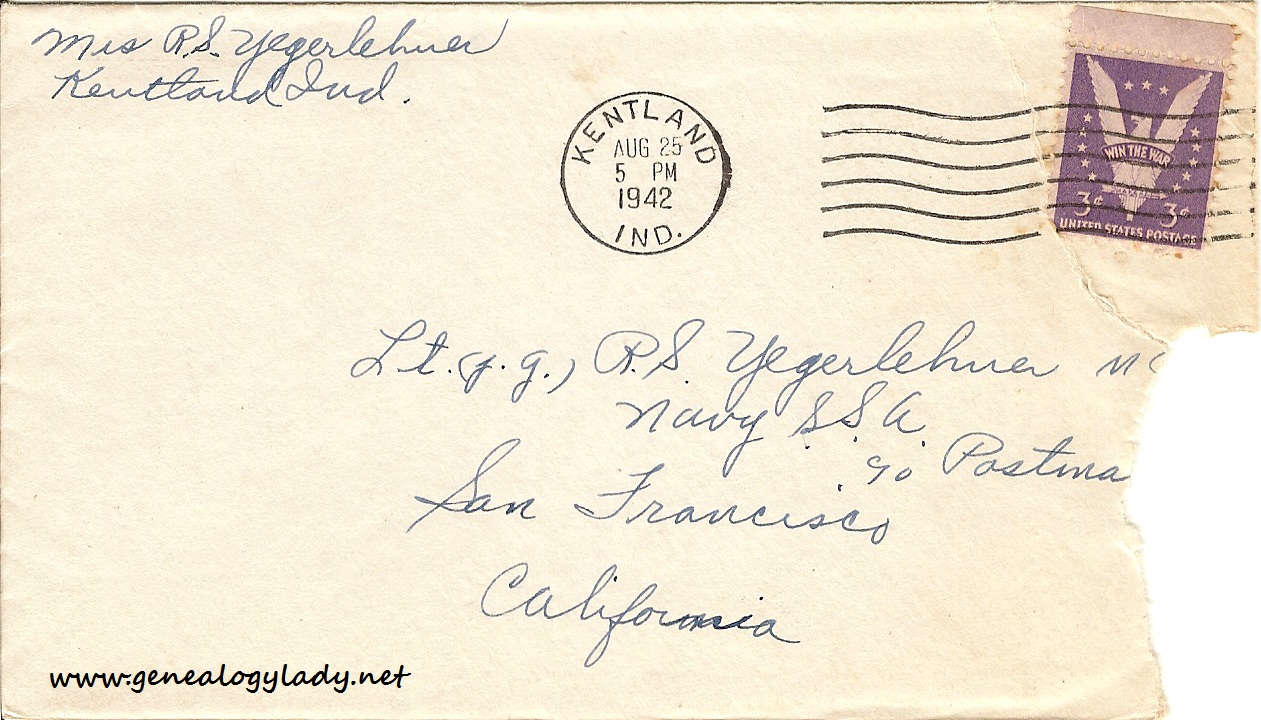 Mrs R.S. Yegerlehner
Kentland Ind.
KENTLAND
AUG 25
5 PM
1942
IND.
WIN THE WAR
3¢ 3¢
UNITED STATES POSTAGE
Lt. (j.g.) R.S. Yegerlehner
Navy S.S.A.
c/o Postma
San Francisco
California
www.genealogylady.net